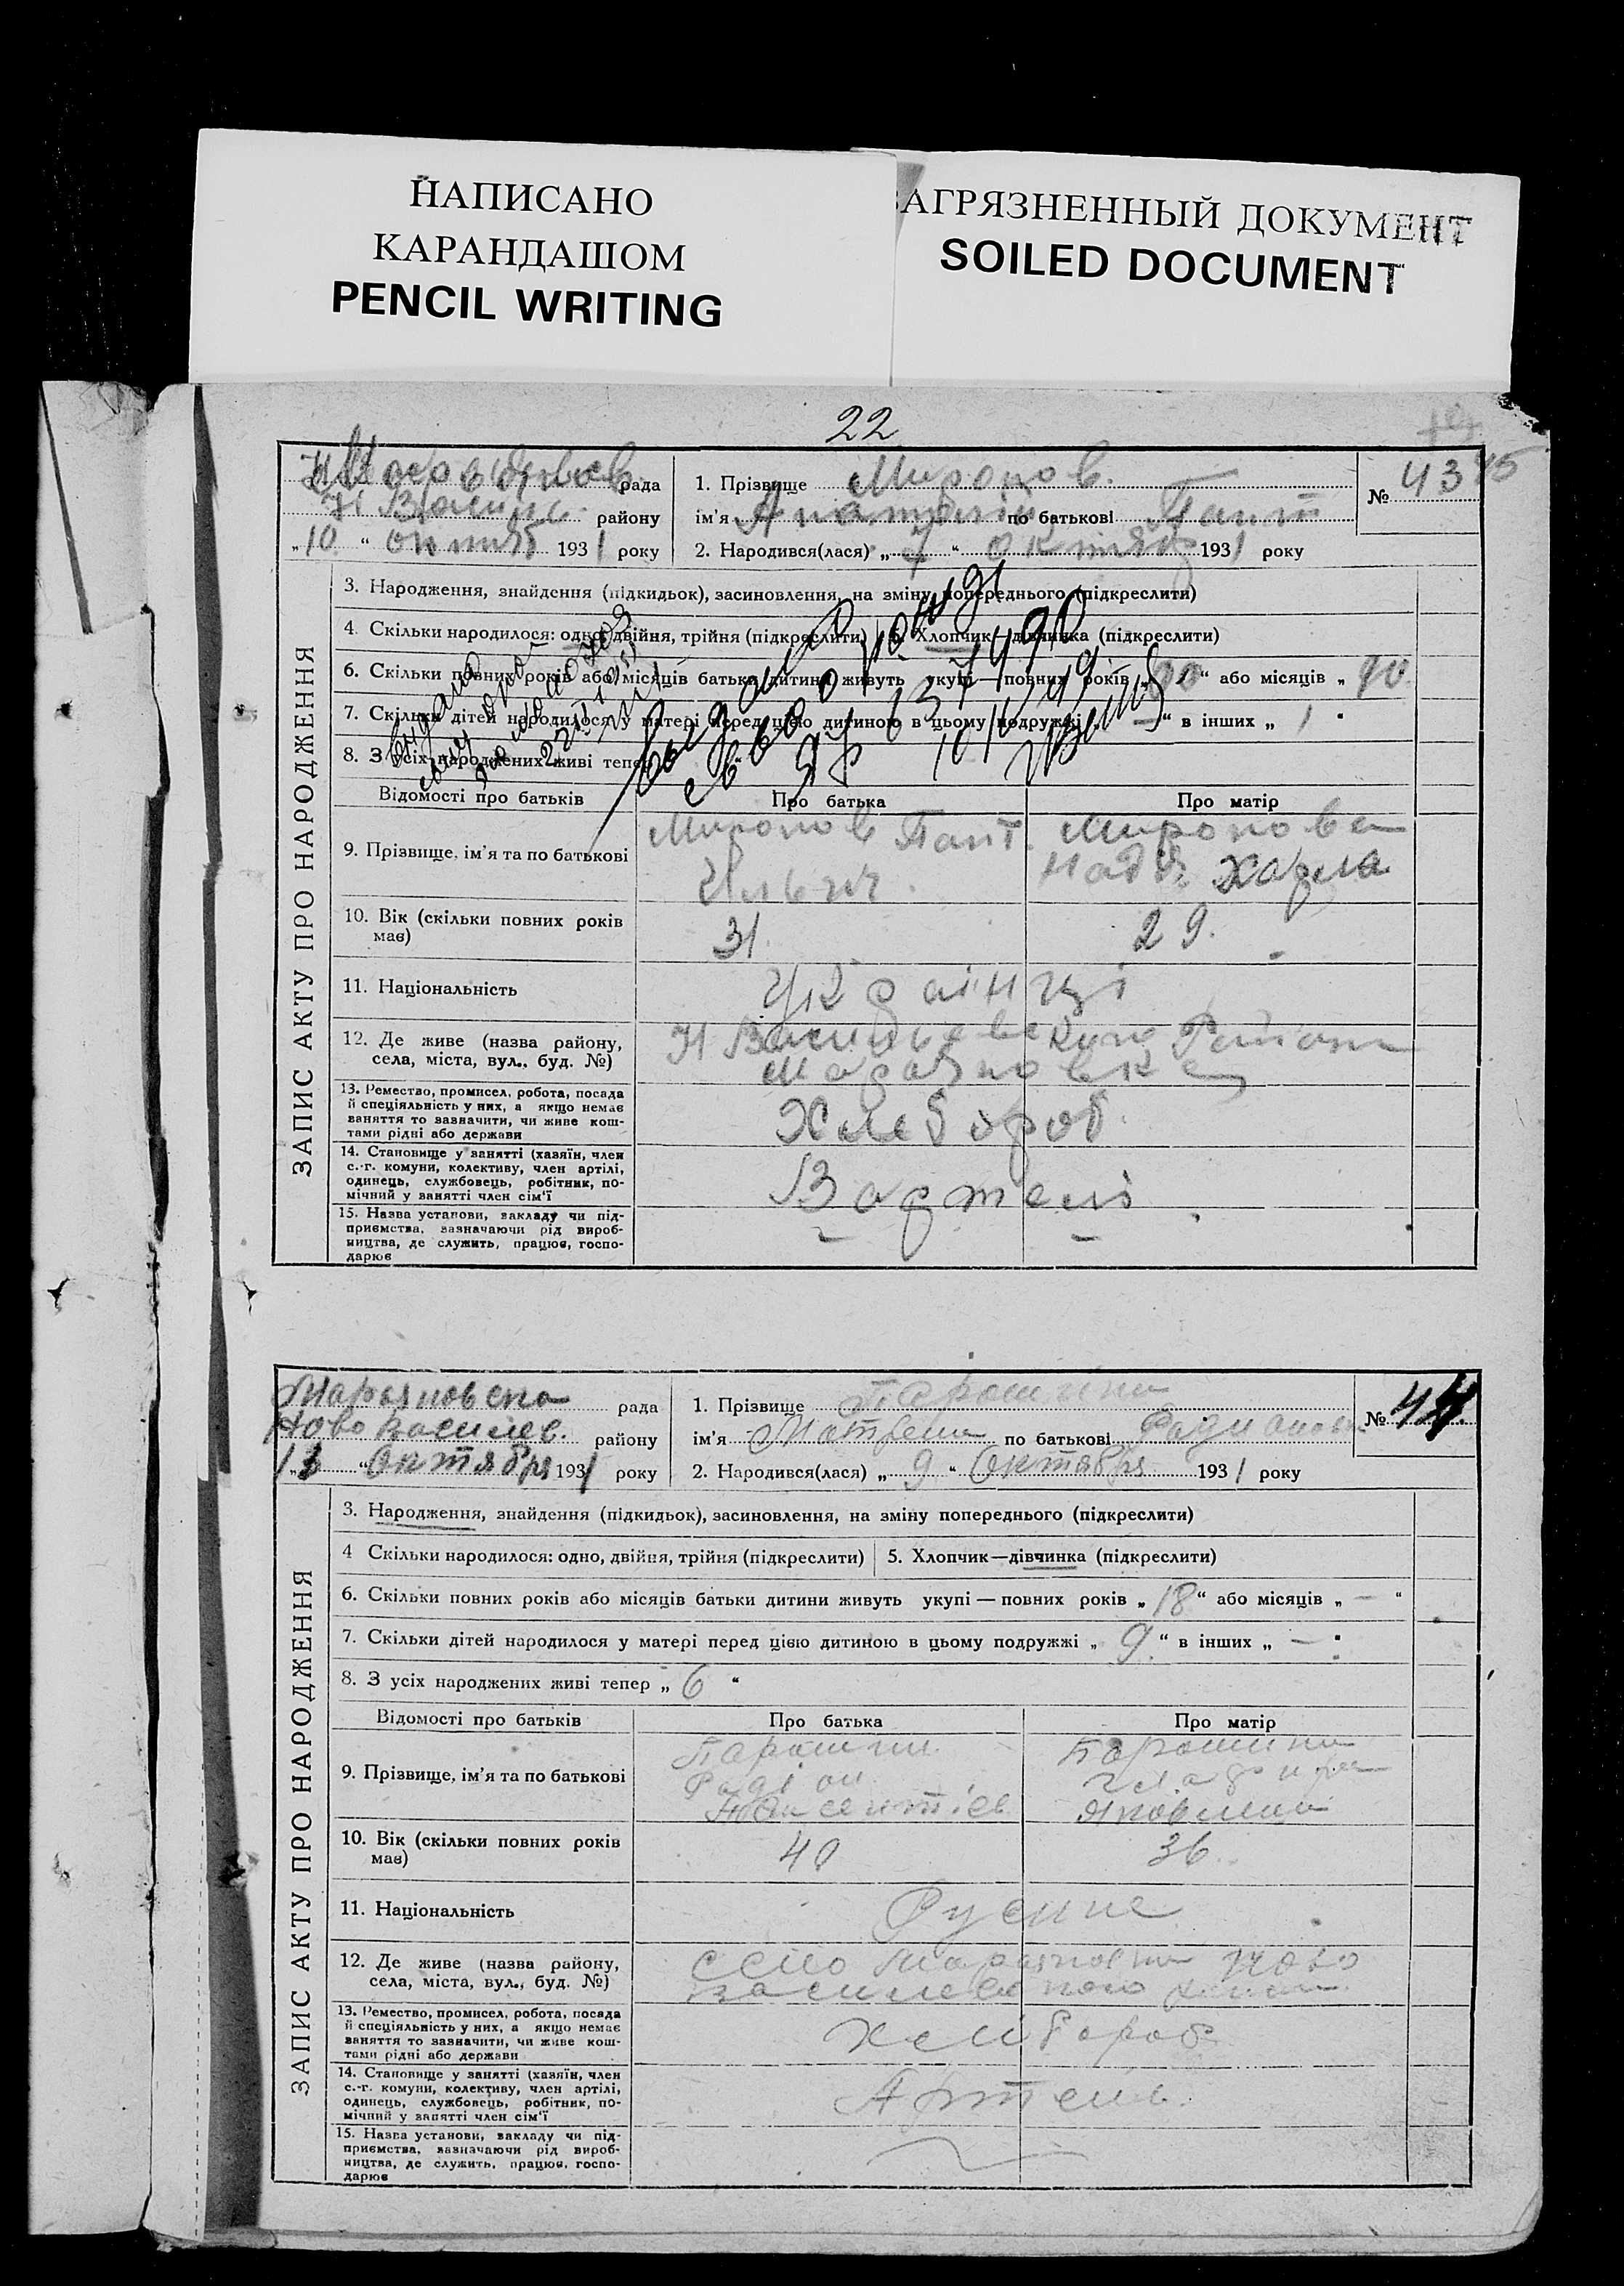 НАПИСАНО
КАРАНДАШОМ
PENCIL WRITING
ЗАГРЯЗНЕННЫЙ ДОКУМЕНТ
SOILED DOCUMENT
22
рада
Н Васил. району
„10“ октяб 1931 року
1. Прізвище Миронов.
ім'я Анатолій по батькові Пант
2. Народився(лася) „7“ октяб 1931 року
№ 43 45
ЗАПИС АКТУ ПРО НАРОДЖЕННЯ
3. Народження, знайдення (підкидьок), засиновлення, на зміну попереднього (підкреслити)
4 Скільки народилося: одно, двійня, трійня (підкреслити) 5. Хлопчик—дівчинка (підкреслити)
6. Скільки повних років або місяців батьки дитини живуть укупі — повних років „ “ або місяців „
7. Скільки дітей народилося у матері перед цією дитиною в цьому подружжі „—“ в інших „ 1
8. З усіх народжених живі тепер
Відомості про батьків Про батька Про матір
9. Прізвище, ім'я та по батькові
Миронов Пант.
Ильич.
Миронова
Надя Харла
10. Вік (скільки повних років має) 31. 29.
11. Національність Українці
12. Де живе (назва району, села, міста, вул., буд. №)
Н Васильевского Района
Марановка
13. Ремество, промисел, робота, посада
й спеціяльність у них, а якщо немає
заняття то зазначити, чи живе кош-
тами рідні або держави
Хлебороб.
14. Становище у занятті (хазяїн, член
с.-г. комуни, колективу, член артілі,
одинець, службовець, робітник, по-
мічний у занятті член сім'ї
В артелі
15. Назва установи, закладу чи під-
приємства, зазначаючи рід вироб-
ництва, де служить, працює, госпо-
дарює
Марановска рада
Ново Василев. району
„13“ Октября 1931 року
1. Прізвище Парошина
ім'я Матрена по батькові
2. Народився(лася) „9“ Октября 1931 року
№ 44.
ЗАПИС АКТУ ПРО НАРОДЖЕННЯ
3. Народження, знайдення (підкидьок), засиновлення, на зміну попереднього (підкреслити)
4 Скільки народилося: одно, двійня, трійня (підкреслити) 5. Хлопчик—дівчинка (підкреслити)
6. Скільки повних років або місяців батьки дитини живуть укупі — повних років „18“ або місяців „—“
7. Скільки дітей народилося у матері перед цією дитиною в цьому подружжі „9.“ в інших „—
8. З усіх народжених живі тепер „6“
Відомості про батьків Про батька Про матір
9. Прізвище, ім'я та по батькові
Парошин
Радіон
Парошина
Яковлевна
10. Вік (скільки повних років має) 40 36
11. Національність Русские
12. Де живе (назва району, села, міста, вул., буд. №)
село Марановка Ново
василевского
13. Ремество, промисел, робота, посада
й спеціяльність у них, а якщо немає
заняття то зазначити, чи живе кош-
тами рідні або держави
Хлібороб
14. Становище у занятті (хазяїн, член
с.-г. комуни, колективу, член артілі,
одинець, службовець, робітник, по-
мічний у занятті член сім'ї
Артель.
15. Назва установи, закладу чи під-
приємства, зазначаючи рід вироб-
ництва, де служить, працює, госпо-
дарює